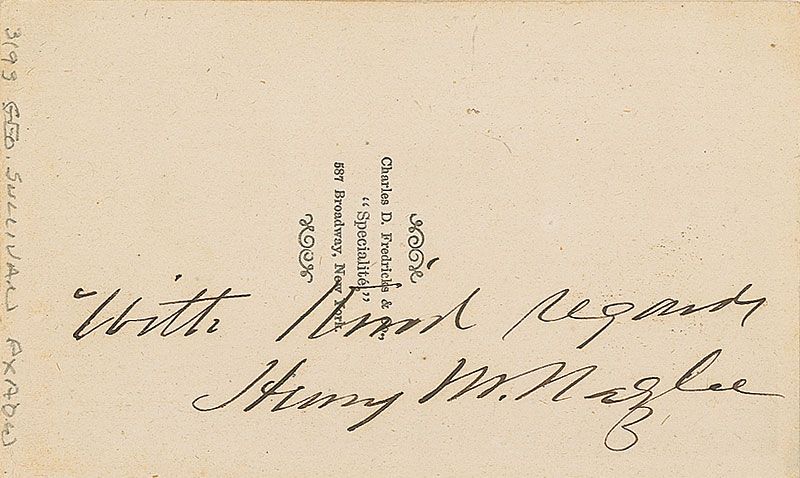 With Kind regards
Henry M. Naglee
Charles D. Fredricks & Co.,
"Specialité,"
587 Broadway, New York.
3193 GEO. SULLIVAN